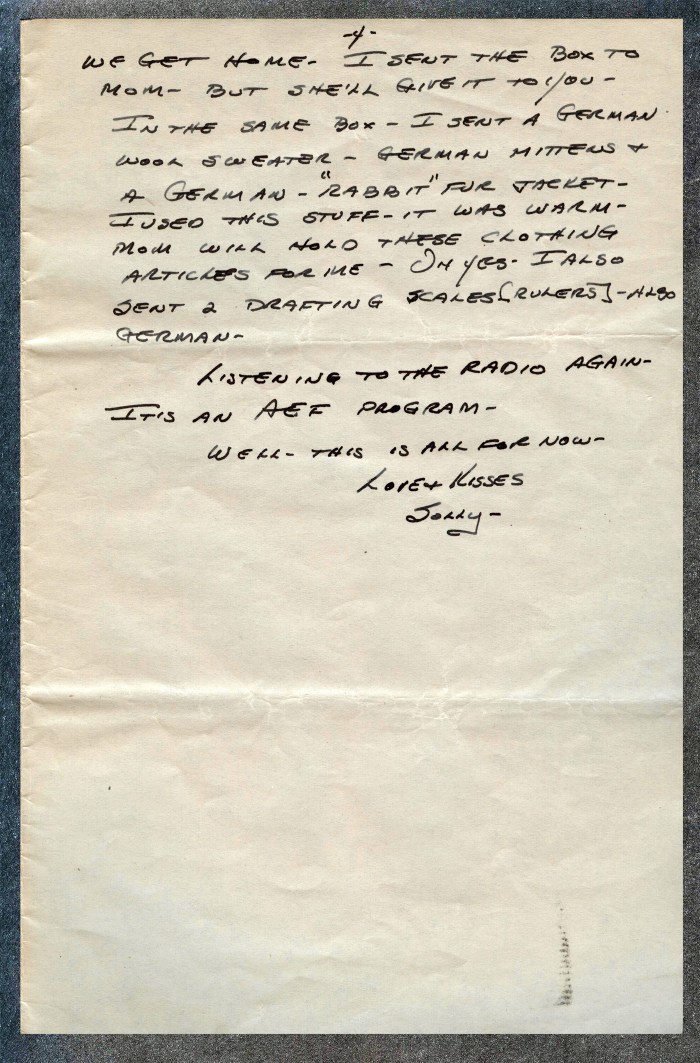 -4-
WE GET HOME- I SENT THE BOX TO
MOM- BUT SHE'LL GIVE IT TO YOU-
IN THE SAME BOX- I SENT A GERMAN
WOOL SWEATER- GERMAN MITTENS +
A GERMAN-"RABBIT" FUR JACKET-
I USED THIS STUFF-IT WAS WARM-
MOM WILL HOLD THESE CLOTHING
ARTICLES FOR ME- OH YES- I ALSO
SENT 2 DRAFTING SCALES [RULERS]-ALSO
GERMAN-
LISTENING TO THE RADIO AGAIN-
IT IS AN AEF PROGRAM-
WELL- THIS IS ALL FOR NOW-
LOVE + KISSES
SOLLY-